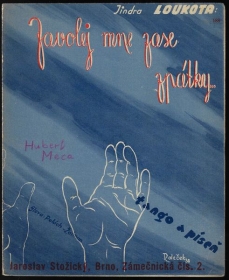 Jindra LOUKOTA:
Zavolej mne zase
zpátky..
Hubert
Maca
tango a píseň
Jaroslav Stožický, Brno, Zámečnická čís. 2.